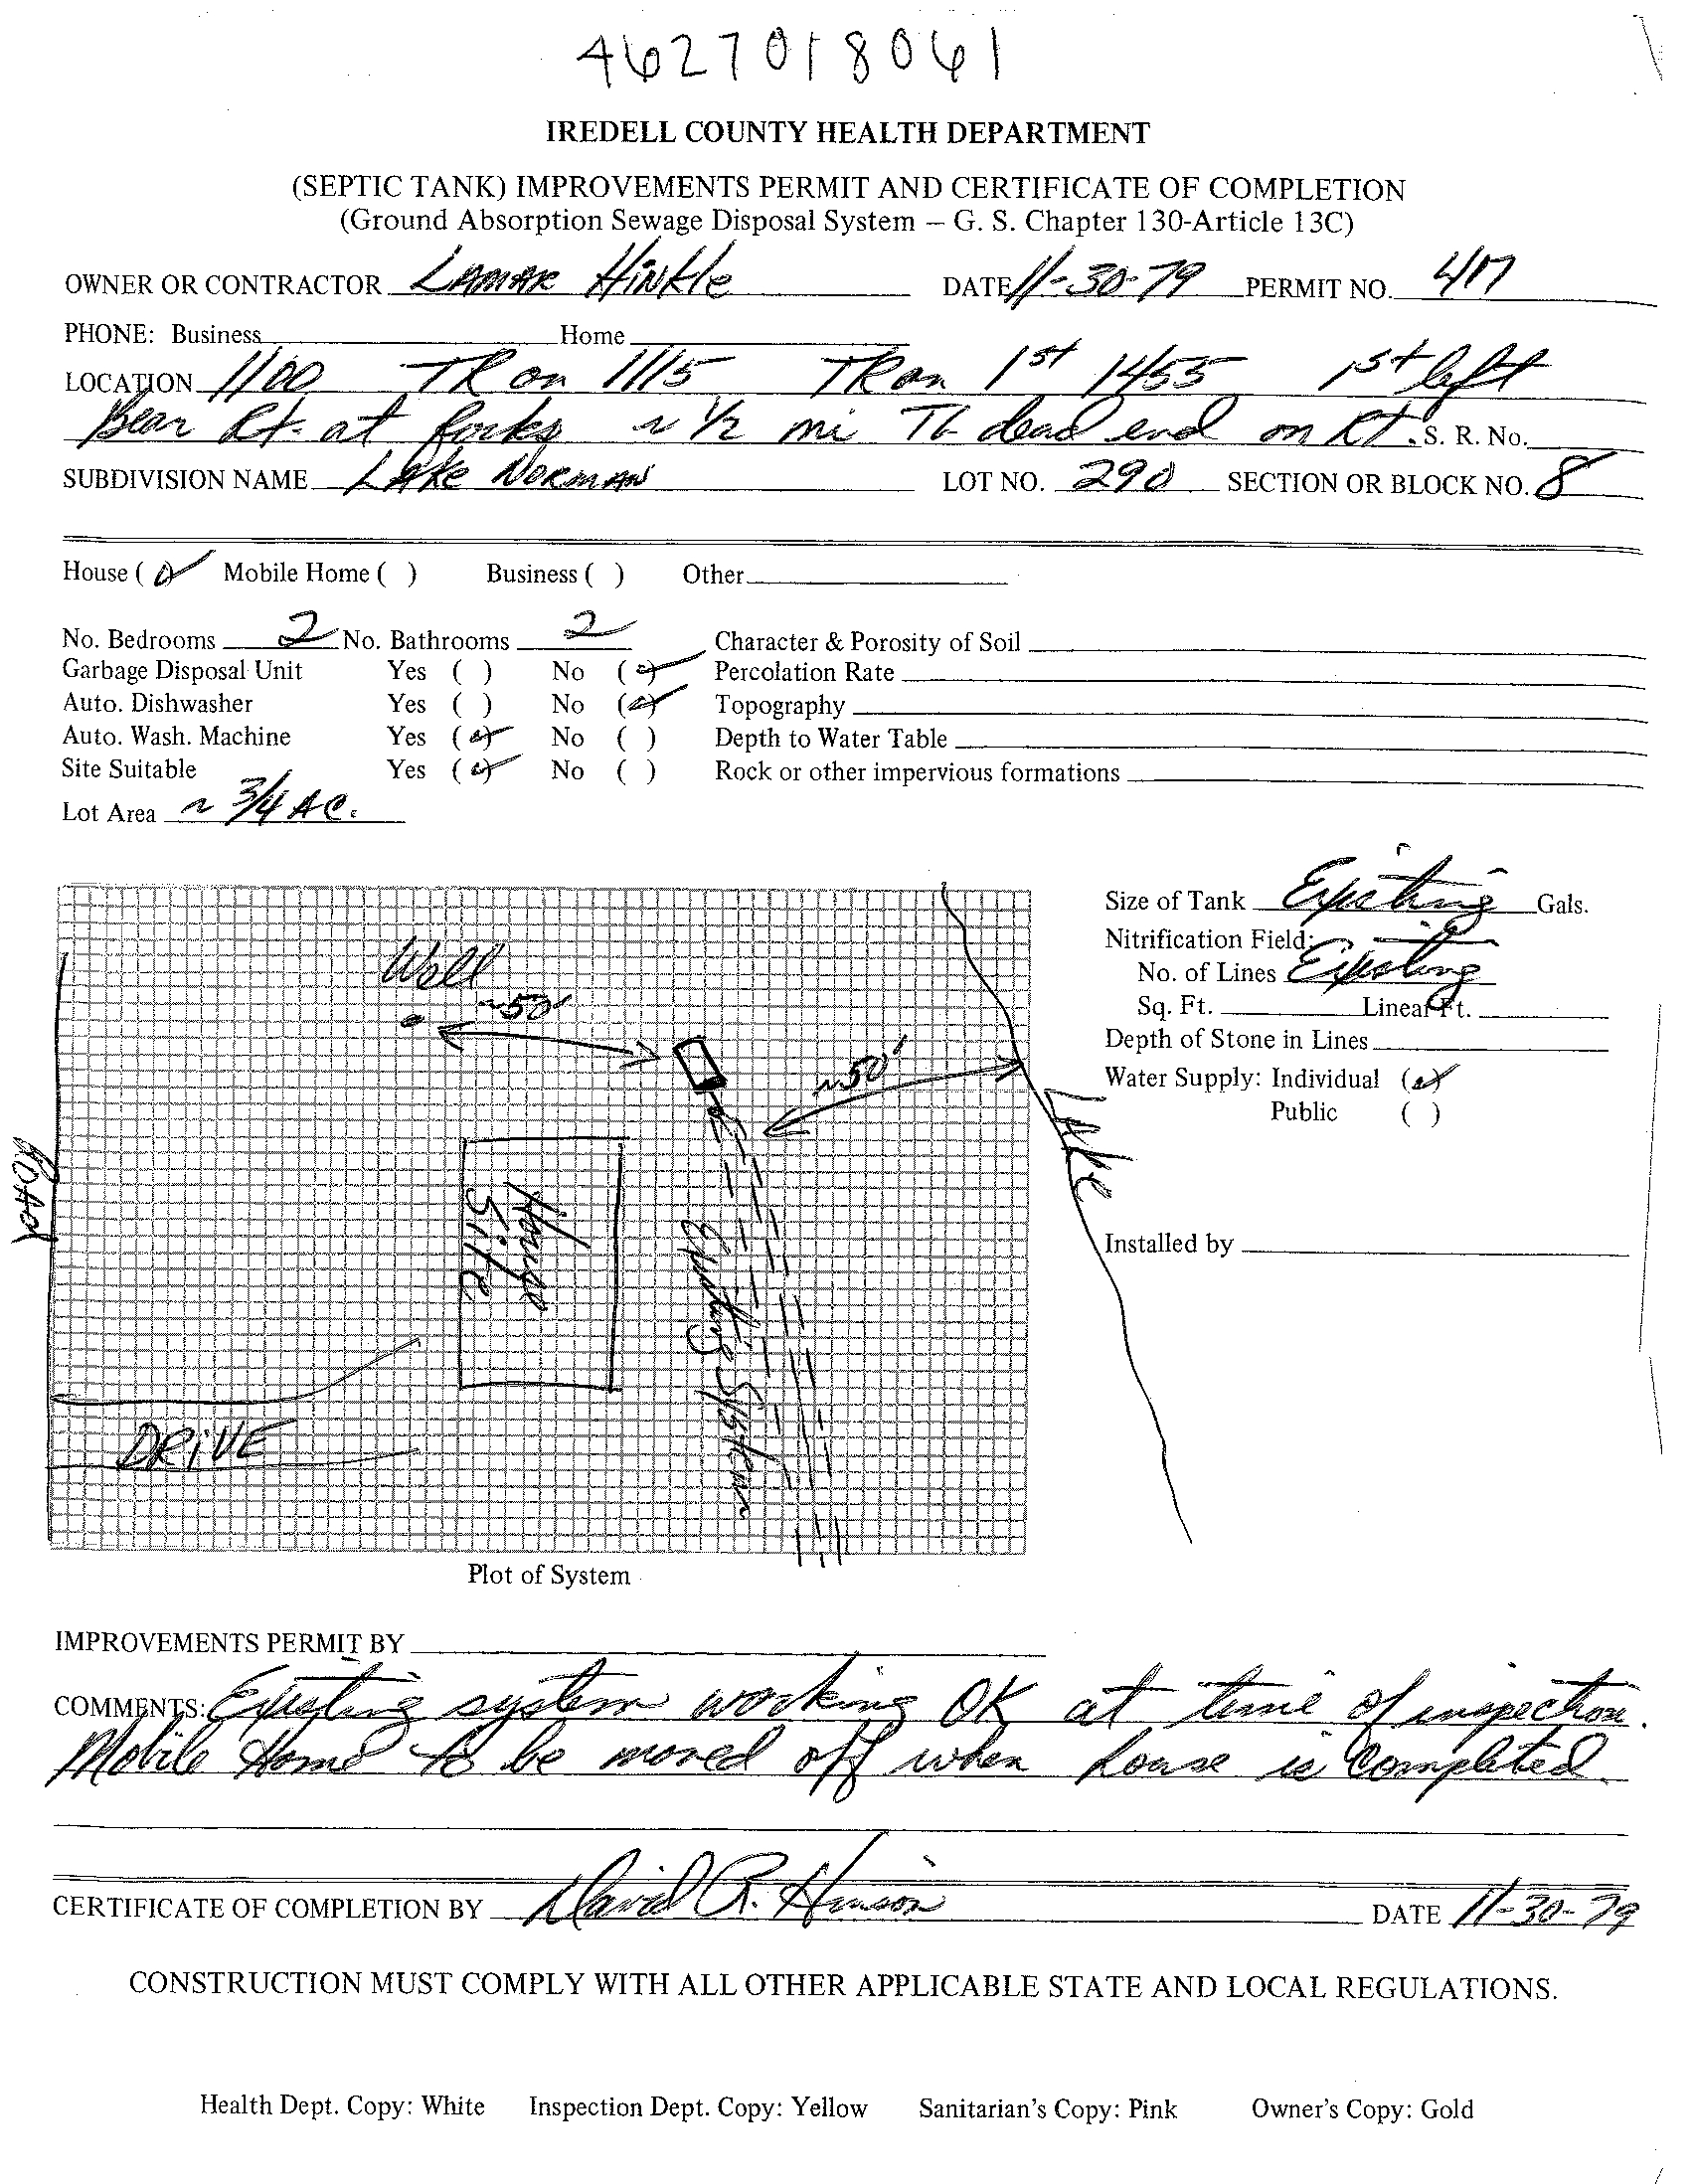 4627018061
IREDELL COUNTY HEALTH DEPARTMENT
(SEPTIC TANK) IMPROVEMENTS PERMIT AND CERTIFICATE OF COMPLETION
(Ground Absorption Sewage Disposal System – G. S. Chapter 130-Article 13C)
OWNER OR CONTRACTOR LAMAR HINKle DATE 11-30-79 PERMIT NO. 417
PHONE: Business Home
LOCATION 1100 TR on 1115 TR on 1st 1455 1st left
Bear Rt. at forks ~ 1/2 mi TL dead end on Rt. S. R. No.
SUBDIVISION NAME LAke NORMAN LOT NO. 290 SECTION OR BLOCK NO. 8
House (✓) Mobile Home ( ) Business ( ) Other
No. Bedrooms 2 No. Bathrooms 2 Character & Porosity of Soil
Garbage Disposal Unit Yes ( ) No (✓) Percolation Rate
Auto. Dishwasher Yes ( ) No (✓) Topography
Auto. Wash. Machine Yes (✓) No ( ) Depth to Water Table
Site Suitable Yes (✓) No ( ) Rock or other impervious formations
Lot Area ~ 3/4 AC.
Size of Tank Existing Gals.
Nitrification Field:
No. of Lines Existing
Sq. Ft. Linear Ft.
Depth of Stone in Lines
Water Supply: Individual (✓)
Public ( )
Installed by
Well
~50'
~50'
LAke
ROAD
House
Site
Existing System
DRIVE
Plot of System
IMPROVEMENTS PERMIT BY
COMMENTS: Existing system working OK at time of inspection.
Mobile Home to be moved off when house is completed.
CERTIFICATE OF COMPLETION BY David R. Hinson DATE 11-30-79
CONSTRUCTION MUST COMPLY WITH ALL OTHER APPLICABLE STATE AND LOCAL REGULATIONS.
Health Dept. Copy: White Inspection Dept. Copy: Yellow Sanitarian's Copy: Pink Owner's Copy: Gold